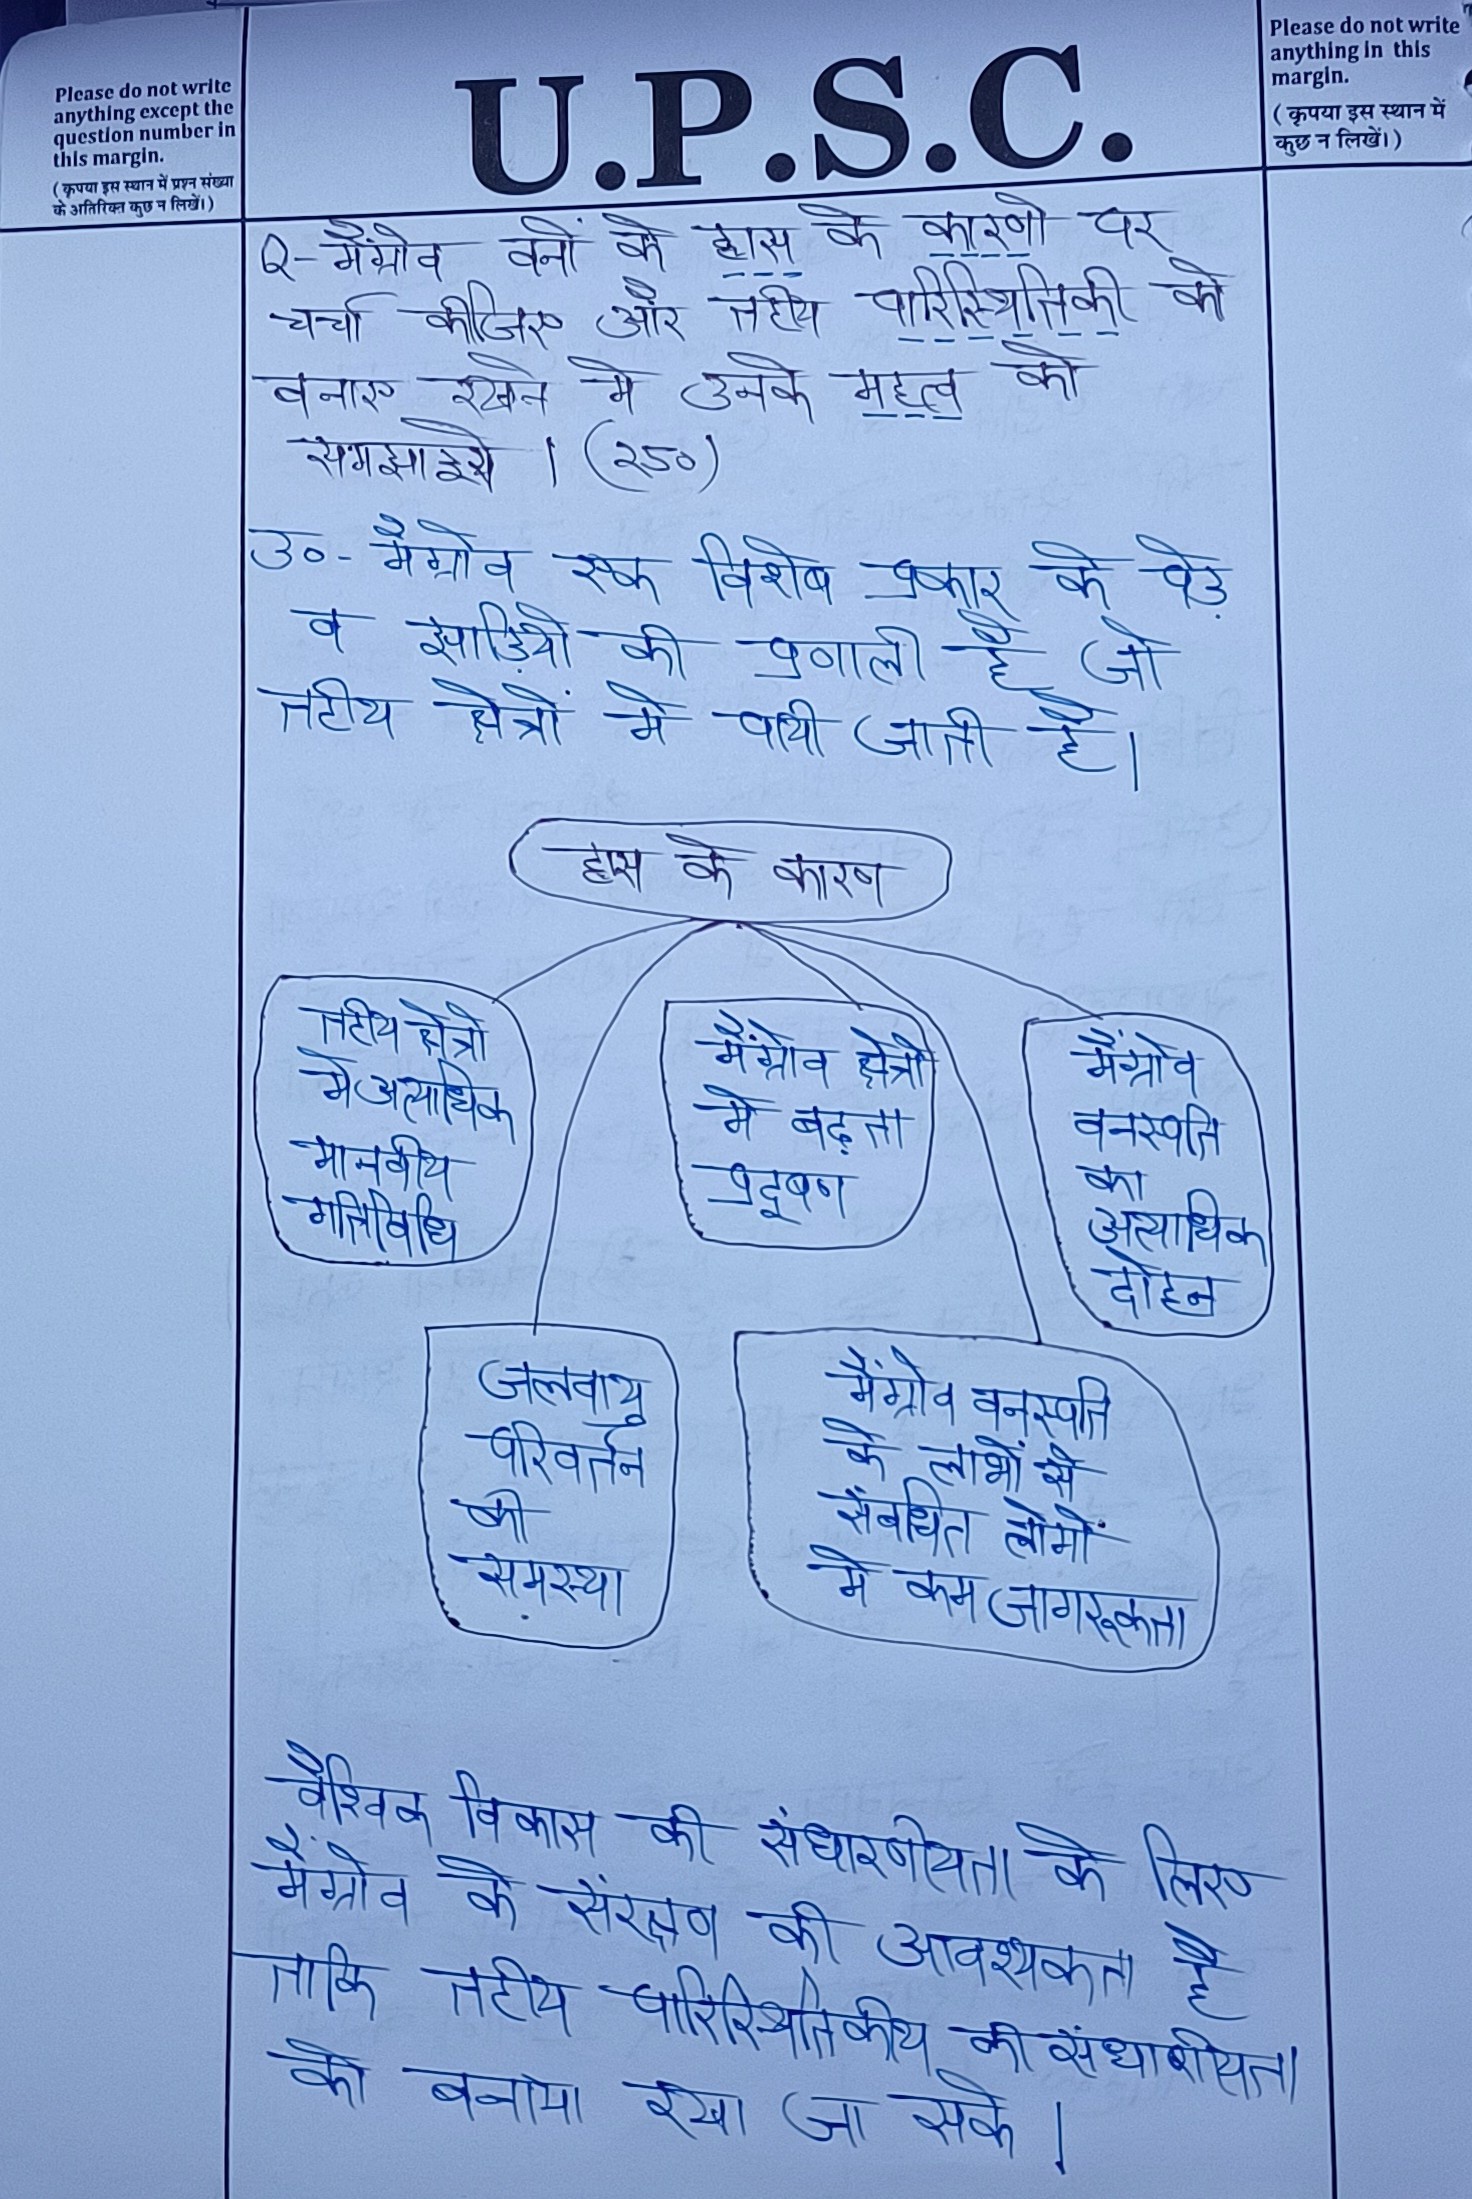 Please do not write
anything except the
question number in
this margin.
(कृपया इस स्थान में प्रश्न संख्या
के अतिरिक्त कुछ न लिखें।)
U.P.S.C.
Please do not write
anything in this
margin.
(कृपया इस स्थान में
कुछ न लिखें।)
Q- मैंग्रोव वनों के ह्रास के कारणो पर
चर्चा कीजिए और तटीय पारिस्थितिकी को
बनाए रखने मे उनके महत्व को
समझाइये । (250)
उ०- मैंग्रोव एक विशेष प्रकार के पेड़
व झाड़ियो की प्रणाली है जो
तटीय क्षेत्रों मे पायी जाती है।
ह्रास के कारण
तटीय क्षेत्रो
मे अत्याधिक
मानवीय
गतिविधि
मैंग्रोव क्षेत्रो
मे बढ़ता
प्रदूषण
मैंग्रोव
वनस्पति
का
अत्याधिक
दोहन
जलवायु
परिवर्तन
की
समस्या
मैंग्रोव वनस्पति
के लाभों से
संबधित लोगों
मे कम जागरूकता
वैश्विक विकास की संधारणीयता के लिए
मैंग्रोव के संरक्षण की आवश्यकता है
ताकि तटीय पारिस्थितिकीय की संधारणीयता
को बनाया रखा जा सके ।